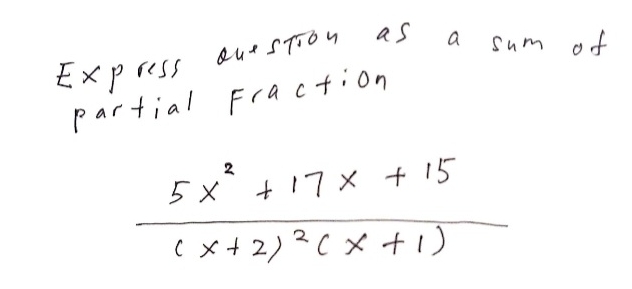 Express question as a sum of
partial Fraction
5x² + 17x + 15
(x+2)²(x+1)